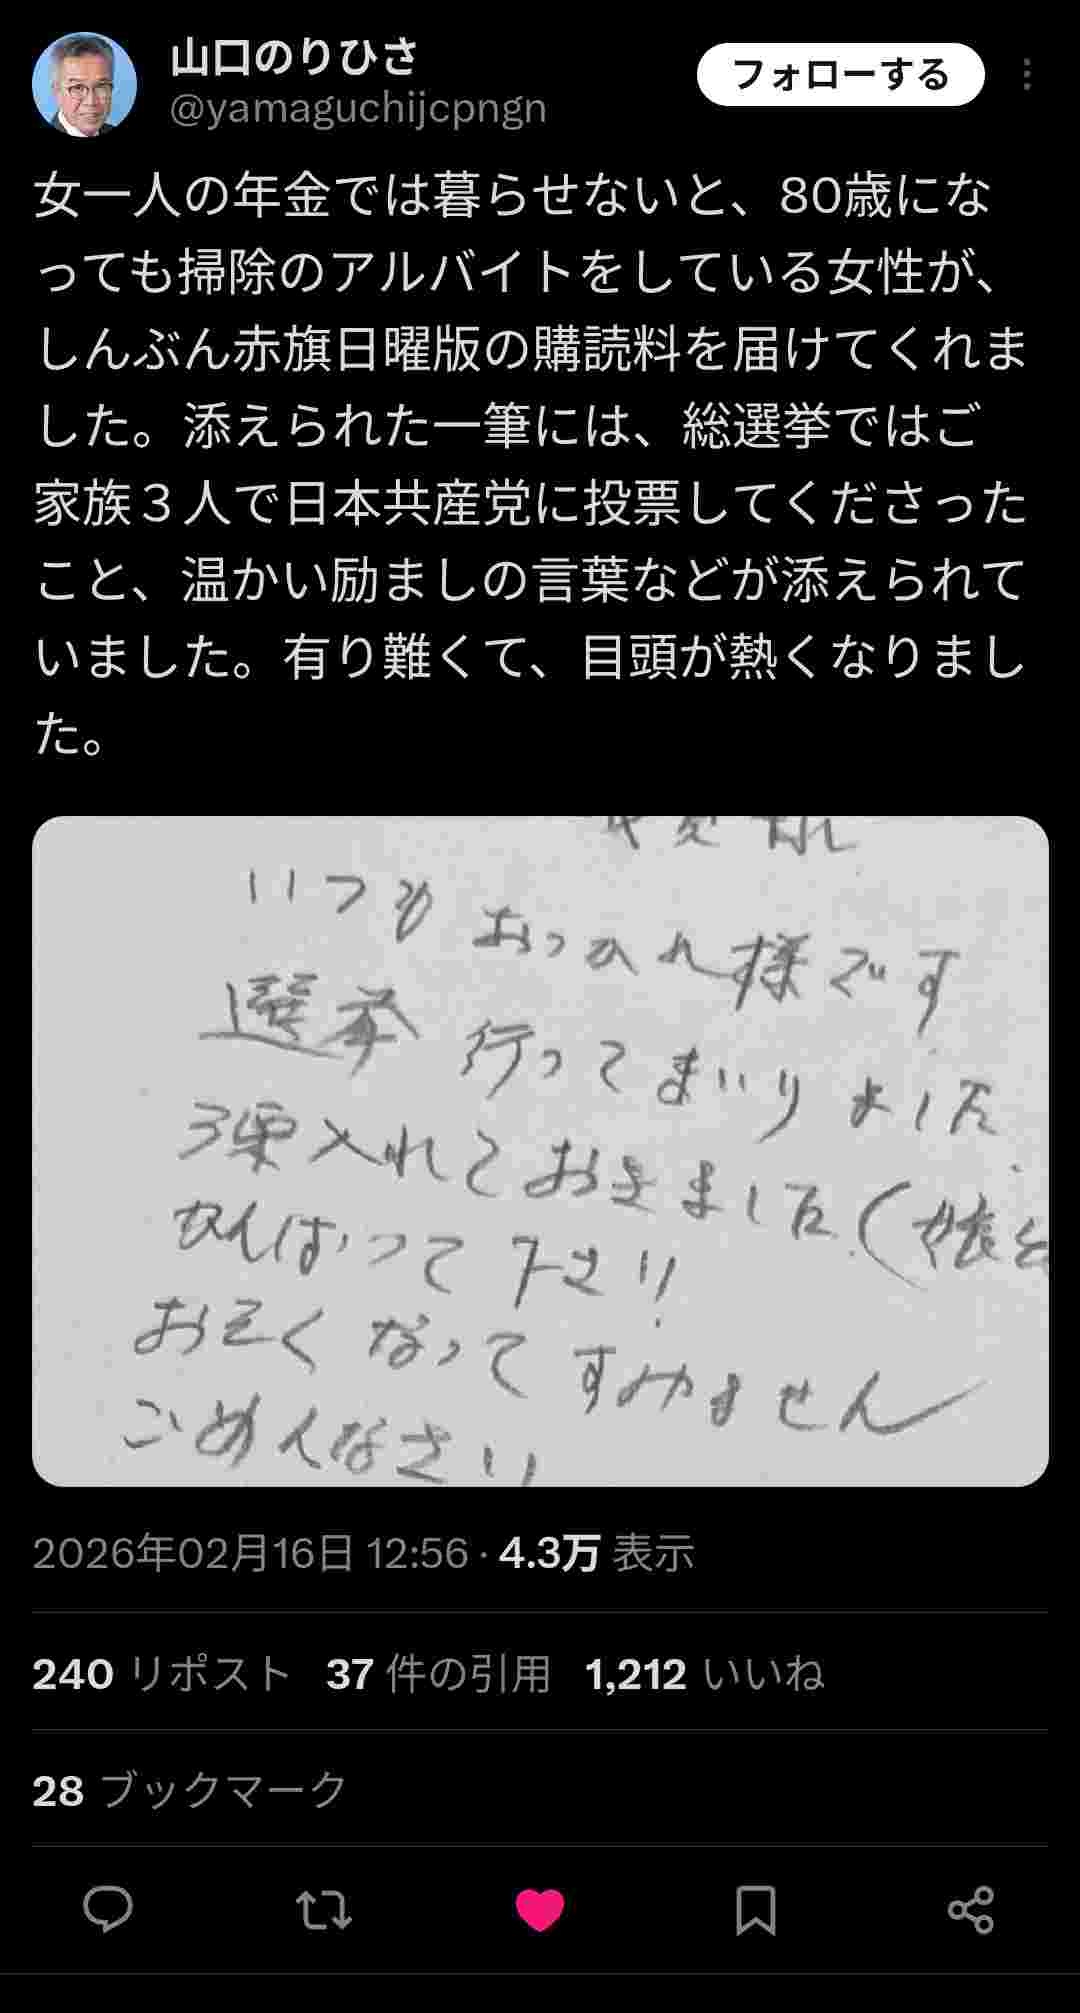 山口のりひさ
@yamaguchijcpngn
フォローする
女一人の年金では暮らせないと、80歳にな
っても掃除のアルバイトをしている女性が、
しんぶん赤旗日曜版の購読料を届けてくれま
した。添えられた一筆には、総選挙ではご
家族３人で日本共産党に投票してくださった
こと、温かい励ましの言葉などが添えられて
いました。有り難くて、目頭が熱くなりまし
た。
いつも おつかれ様です
選挙 行ってまいりました.
3票入れておきました(娘
がんばって下さい
おそくなってすみません
ごめんなさい
2026年02月16日 12:56 · 4.3万 表示
240 リポスト 37 件の引用 1,212 いいね
28 ブックマーク